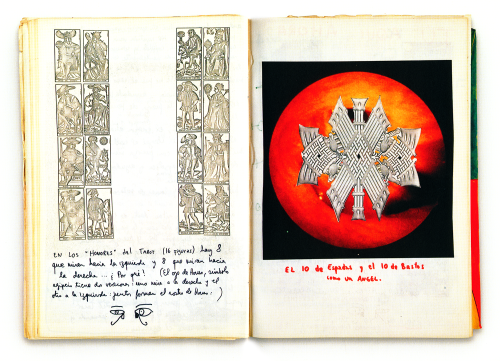 EN LOS "HONORES" del TAROT (16 figuras) hay 8
que miran hacia la izquierda y 8 que miran hacia
la derecha... ¿Por qué? (El ojo de Horus, símbolo
egipcio tiene dos versiones: uno mira a la derecha y el
otro a la izquierda: juntos forman el rostro de Horus.)
EL 10 de Espadas y el 10 de Bastos
como un ANGEL.